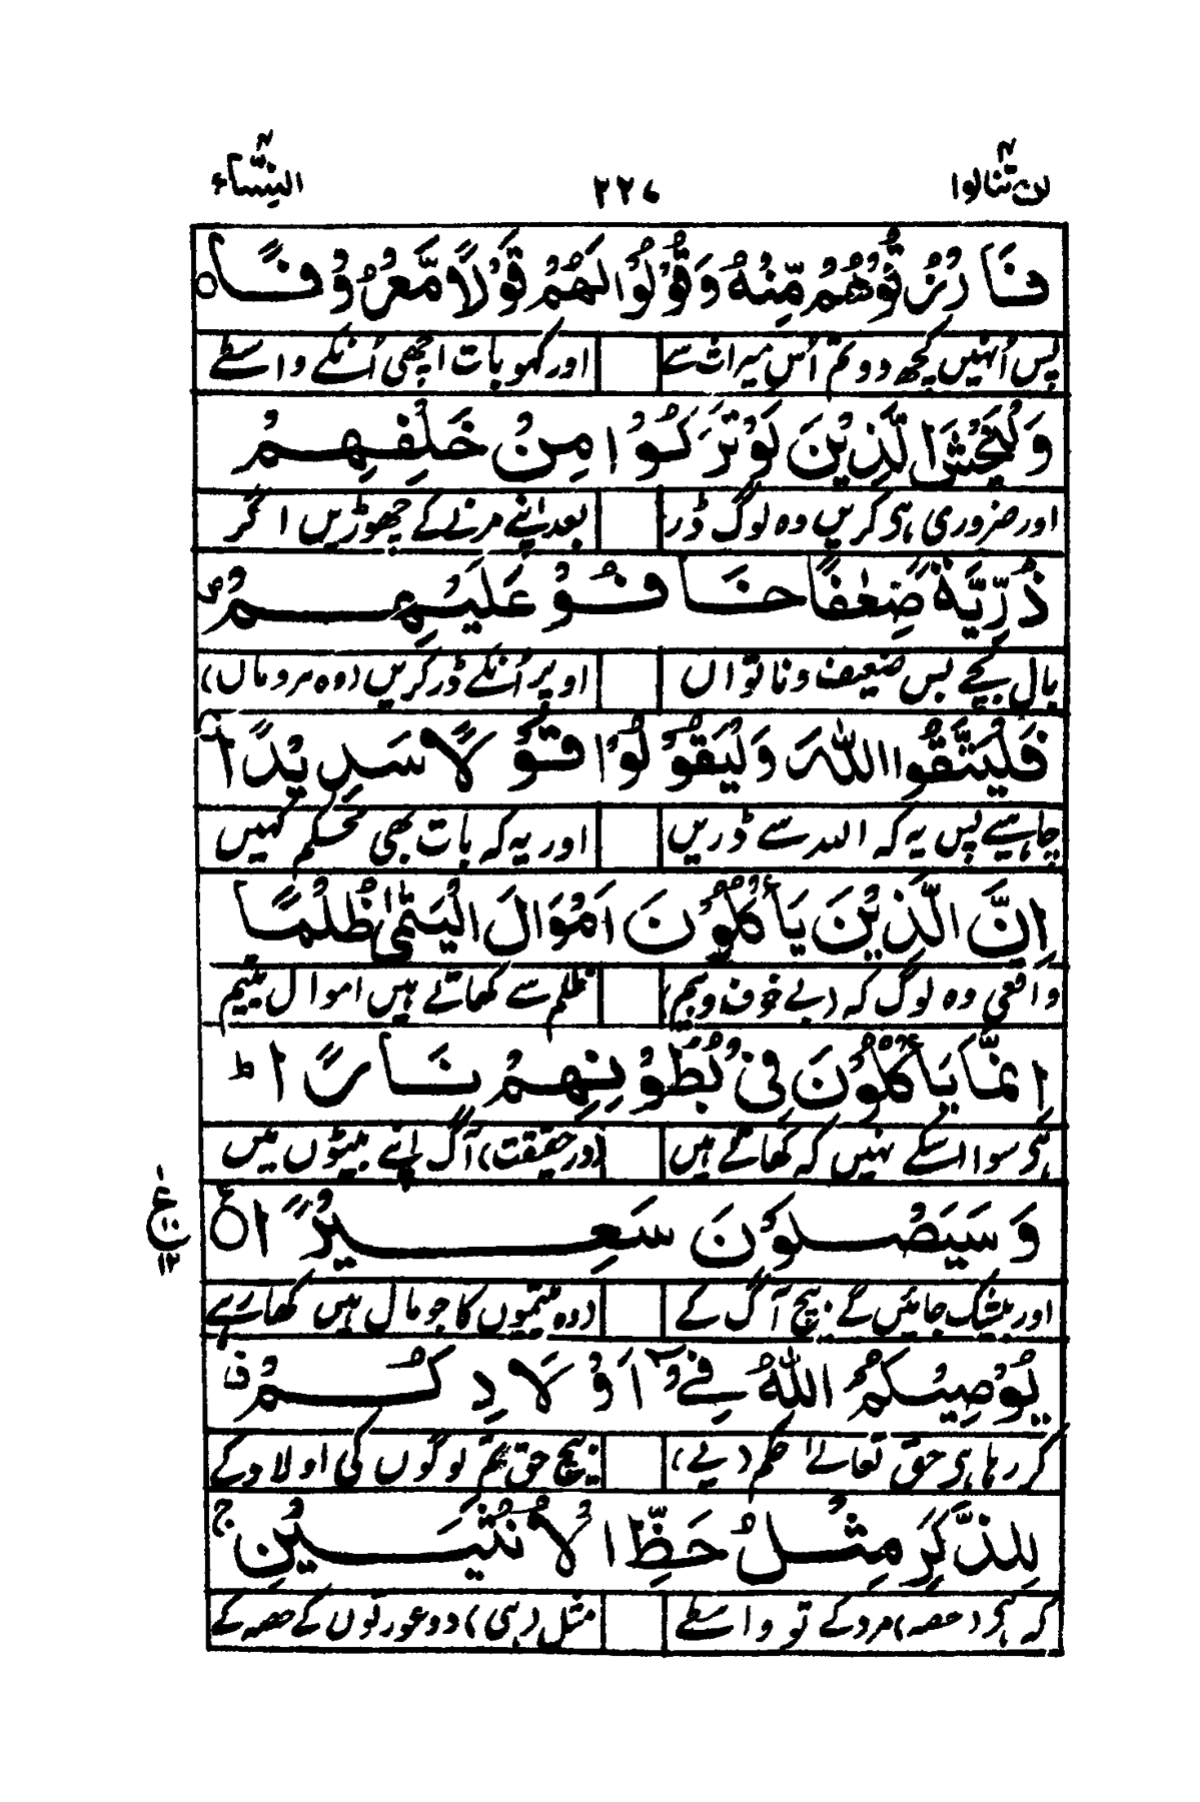 لن تنالوا ۴
۲۲۷
النسآء ۴
فَارْزُقُوْهُمْ مِّنْهُ وَقُوْلُوْا لَهُمْ قَوْلًا مَّعْرُوْفًا ○
پس اُنہیں کچھ دو تم اُس میراث سے اور کہو بات اچھی اُنکے واسطے
وَلْيَخْشَ الَّذِيْنَ لَوْ تَرَكُوْا مِنْ خَلْفِهِمْ
اور ضروری ہی کریں وہ لوگ ڈر بعد اپنے مرنے کے چھوڑیں اگر
ذُرِّيَّةً ضِعٰفًا خَافُوْ عَلَيْهِمْ ص
بال بچے بس ضعیف وناتواں اوپر اُنکے ڈر کریں (وہ مرومال)
فَلْيَتَّقُوا اللهَ وَلْيَقُوْلُوْا قَوْلًا سَدِيْدًا
چاہیے پس یہ کہ اللہ سے ڈریں اور یہ کہ بات بھی محکم کہیں
اِنَّ الَّذِيْنَ يَأْكُلُوْنَ اَمْوَالَ الْيَتٰمٰى ظُلْمًا
واقعی وہ لوگ کہ (بے خوف وبیم) ظلم سے کھاتے ہیں اموال یتیم
اِنَّمَا يَأْكُلُوْنَ فِيْ بُطُوْنِهِمْ نَارًا ط
ہی سوا اسکے نہیں کہ کھاتے ہیں (درحقیقت) آگ اپنے پیٹوں میں
وَسَيَصْلَوْنَ سَعِيْرًا ○ ع
ع ۱ ۱۰ ۱۲
اور بیشک جائیں گے بیچ آگ کے (وہ یتیموں کا جو مال ہیں کھا رہے
يُوْصِيْكُمُ اللهُ فِيْٓ اَوْلَادِكُمْ ق
کر رہا ہی حق تعالےٰ حکم (یے) بیچ حق تم لوگوں کی اولاد کے
لِلذَّكَرِ مِثْلُ حَظِّ الْاُنْثَيَيْنِ ج
کہ ہی (حصہ) مرد کے تو واسطے مثل (ہی) دو عورتوں کے حصہ کے